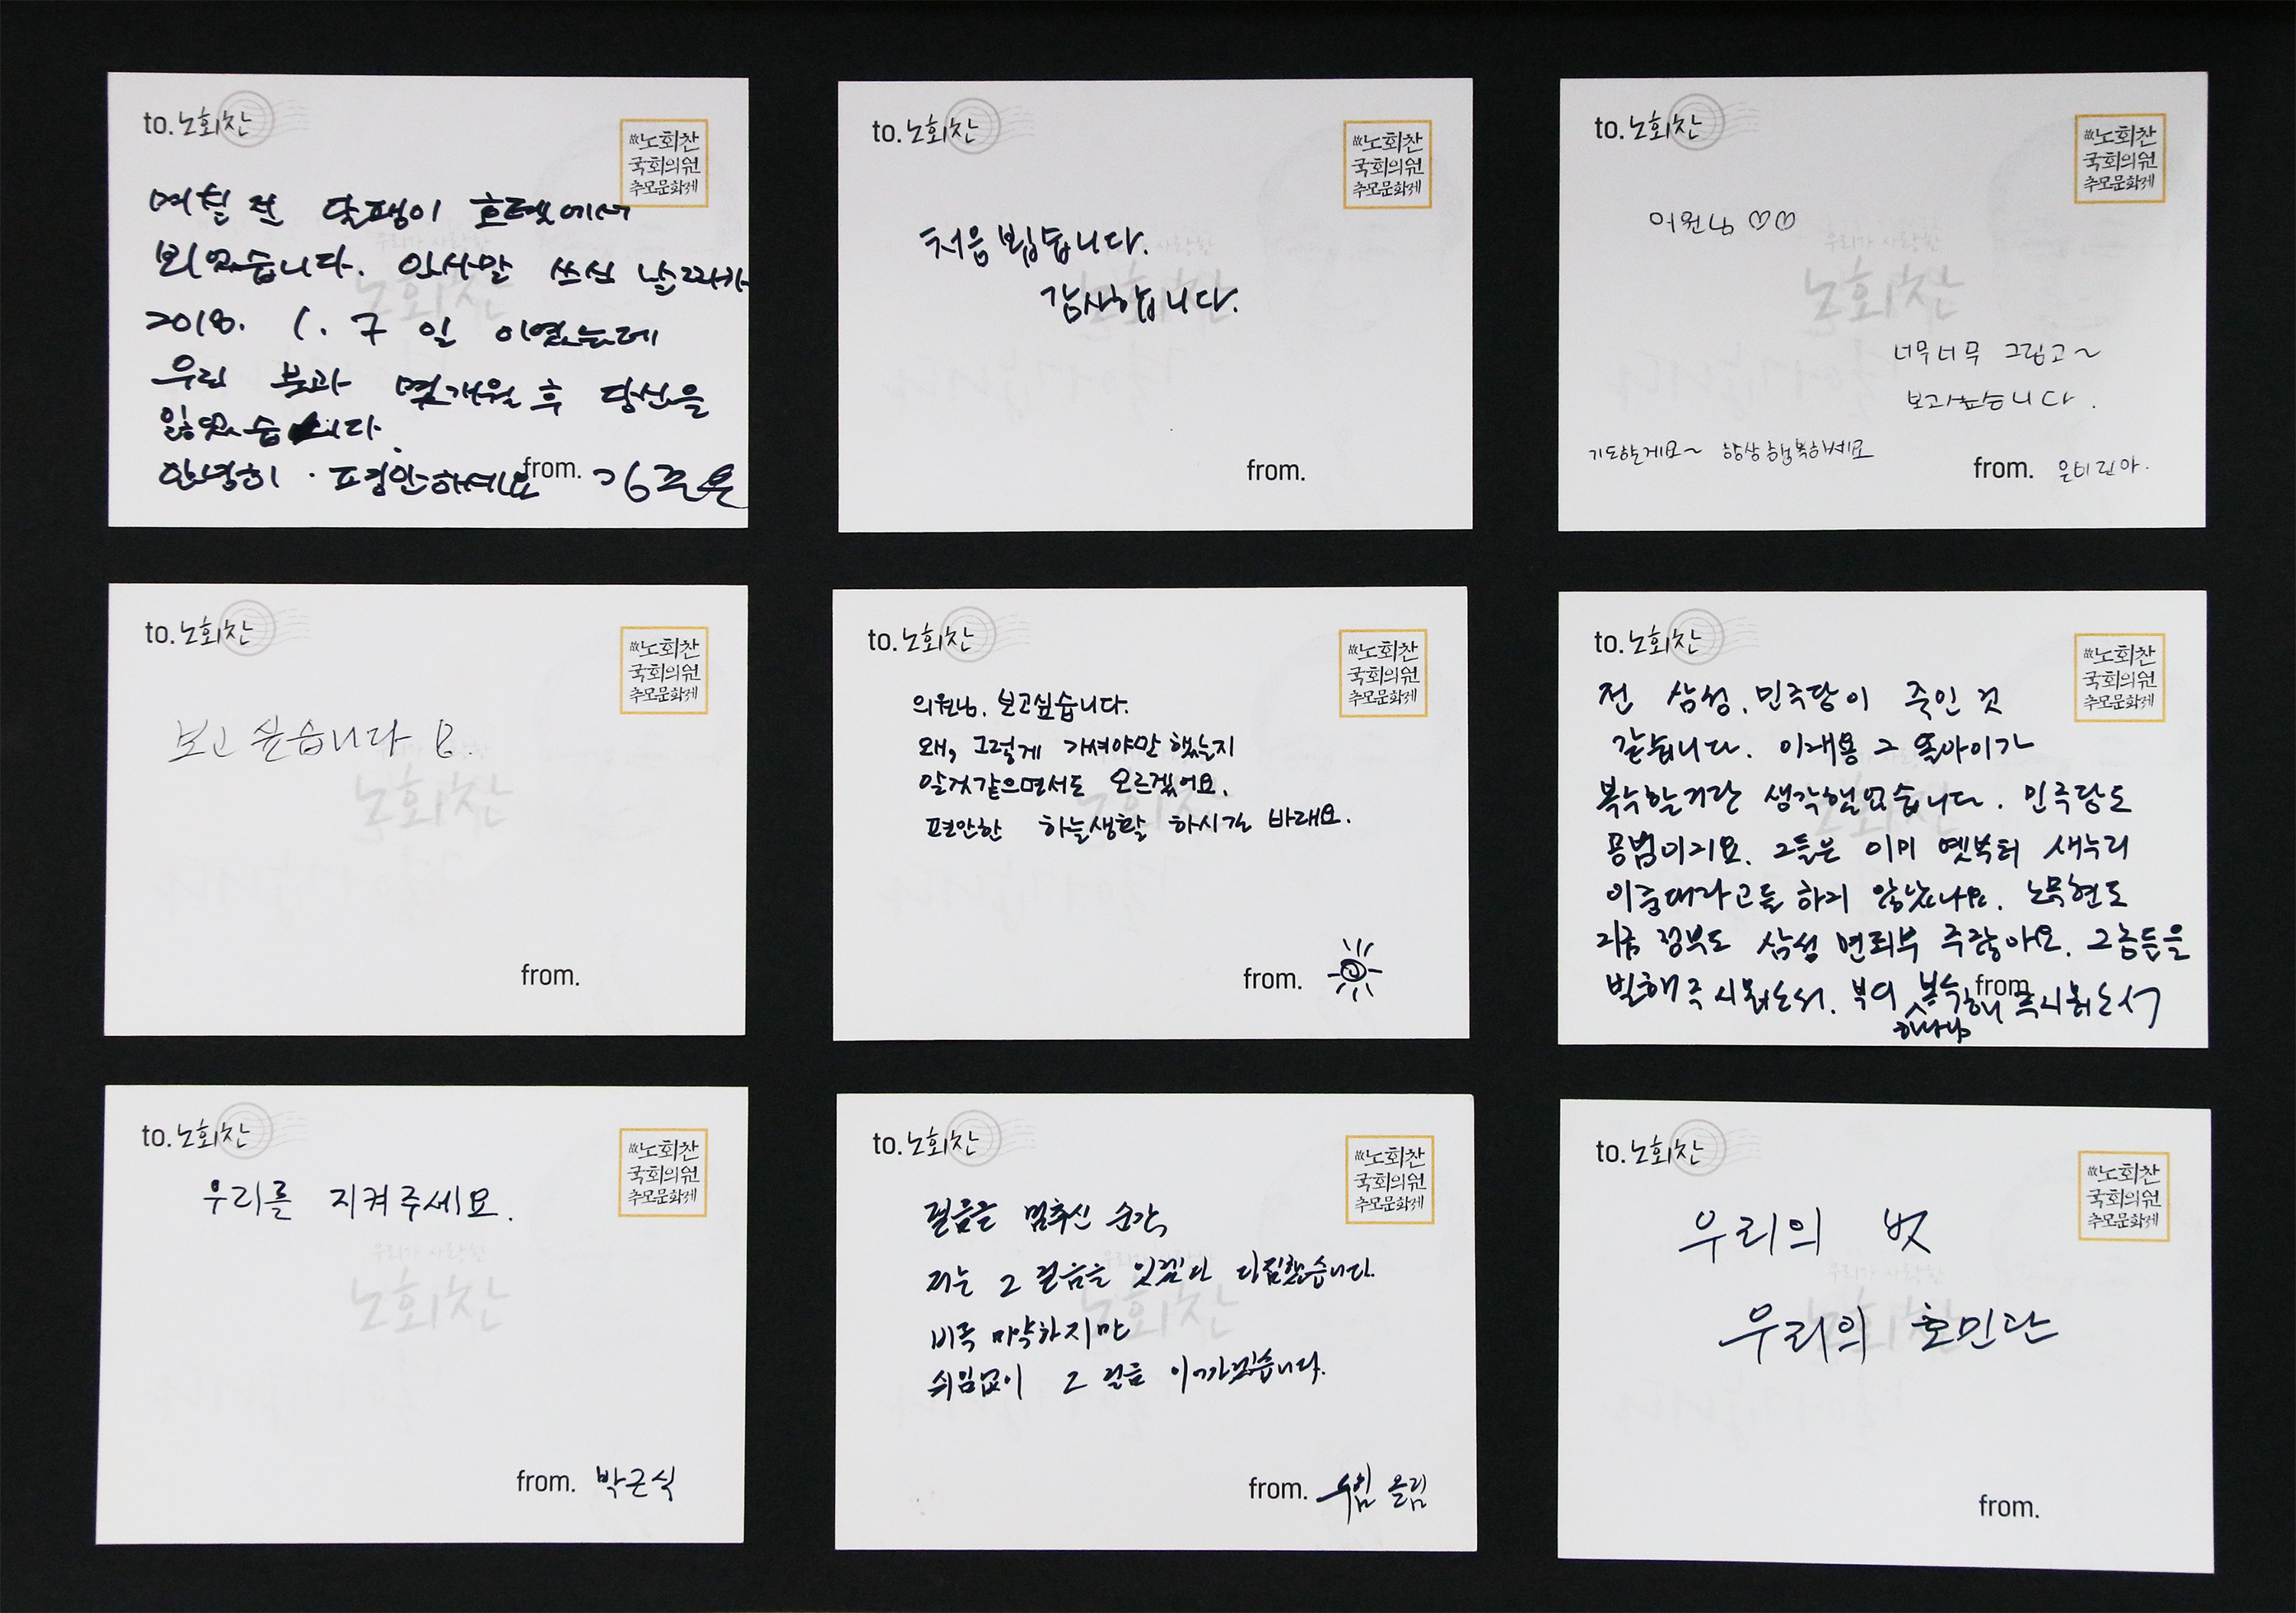 to. 노회찬
故노회찬
국회의원
추모문화제
며칠 전 달팽이 호텔에서
뵈었습니다. 인사말 쓰신 날짜가
2018. 1. 7 일 이였는데
우린 불과 몇개월 후 당신을
잃었습니다.
안녕히 · 평안하세요
from.
to. 노회찬
故노회찬
국회의원
추모문화제
처음 뵙습니다.
감사합니다.
from.
to. 노회찬
故노회찬
국회의원
추모문화제
의원님 ♡♡
우리가 사랑한
노회찬
너무너무 그립고~
보고싶습니다.
기도할게요~ 항상행복하세요
from. 은비린아.
to. 노회찬
故노회찬
국회의원
추모문화제
보고싶습니다 요.
노회찬
from.
to. 노회찬
故노회찬
국회의원
추모문화제
의원님. 보고싶습니다.
왜, 그렇게 가셔야만 했는지
알것같으면서도 모르겠어요.
편안한 하늘생활 하시길 바래요.
from.
to. 노회찬
故노회찬
국회의원
추모문화제
전 삼성, 민주당이 죽인 것
같습니다. 이재용 그 돌아이가
복수할거란 생각했었습니다. 민주당도
공범이지요. 그들은 이미 옛부터 새누리
이중대라고들 하지 않았나요. 노무현도
지금 정부도 삼성 면죄부 주잖아요. 그놈들을
벌해주시옵소서. 부디 복수해주시옵소서
하나님
from.
to. 노회찬
故노회찬
국회의원
추모문화제
우리를 지켜주세요.
우리가 사랑한
노회찬
from. 박근식
to. 노회찬
故노회찬
국회의원
추모문화제
걸음을 멈추신 순간,
저는 그 걸음을 잇겠다 다짐했습니다.
비록 미약하지만
쉬임없이 그 걸음 이어가겠습니다.
from. 수임 올림
to. 노회찬
故노회찬
국회의원
추모문화제
우리의 벗
우리가 사랑한
노회찬
우리의 호민관
from.